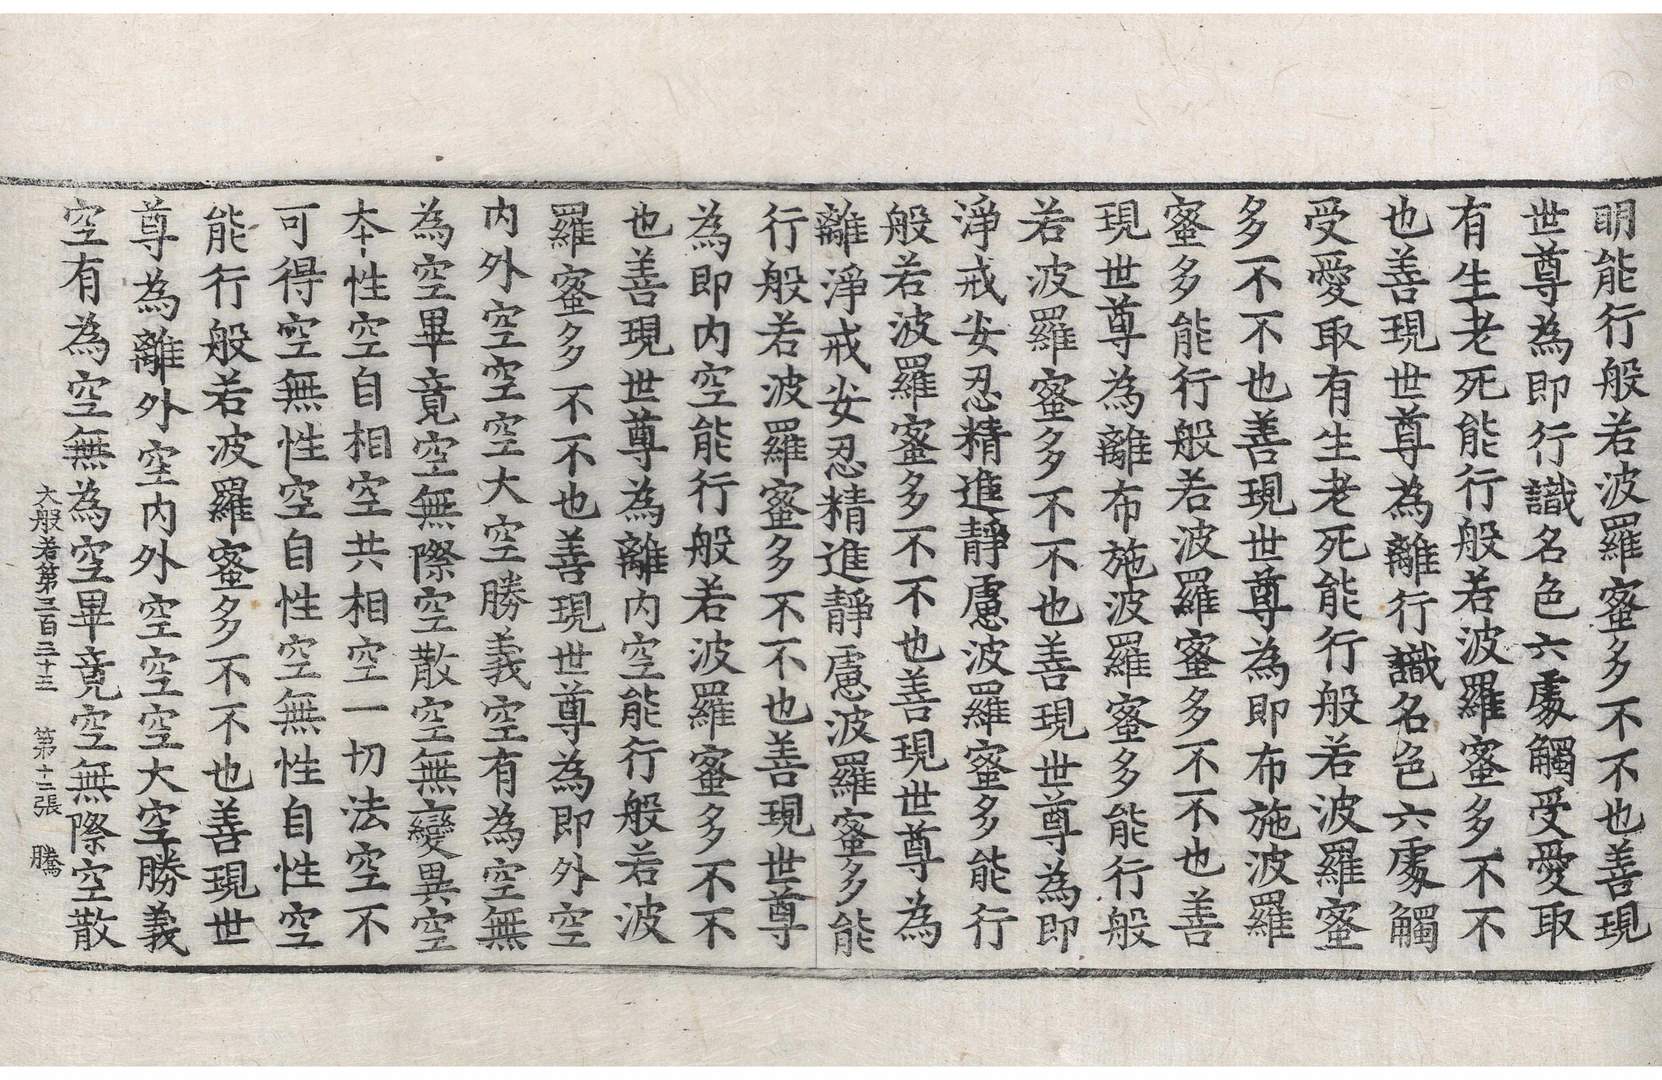 明能行般若波羅蜜多不不也善現
世尊為即行識名色六處觸受愛取
有生老死能行般若波羅蜜多不不
也善現世尊為離行識名色六處觸
受愛取有生老死能行般若波羅蜜
多不不也善現世尊為即布施波羅
蜜多能行般若波羅蜜多不不也善
現世尊為離布施波羅蜜多能行般
若波羅蜜多不不也善現世尊為即
淨戒安忍精進靜慮波羅蜜多能行
般若波羅蜜多不不也善現世尊為
離淨戒安忍精進靜慮波羅蜜多能
行般若波羅蜜多不不也善現世尊
為即內空能行般若波羅蜜多不不
也善現世尊為離內空能行般若波
羅蜜多不不也善現世尊為即外空
內外空空空大空勝義空有為空無
為空畢竟空無際空散空無變異空
本性空自相空共相空一切法空不
可得空無性空自性空無性自性空
能行般若波羅蜜多不不也善現世
尊為離外空內外空空空大空勝義
空有為空無為空畢竟空無際空散
大般若第三百三十三 第十二張 騰